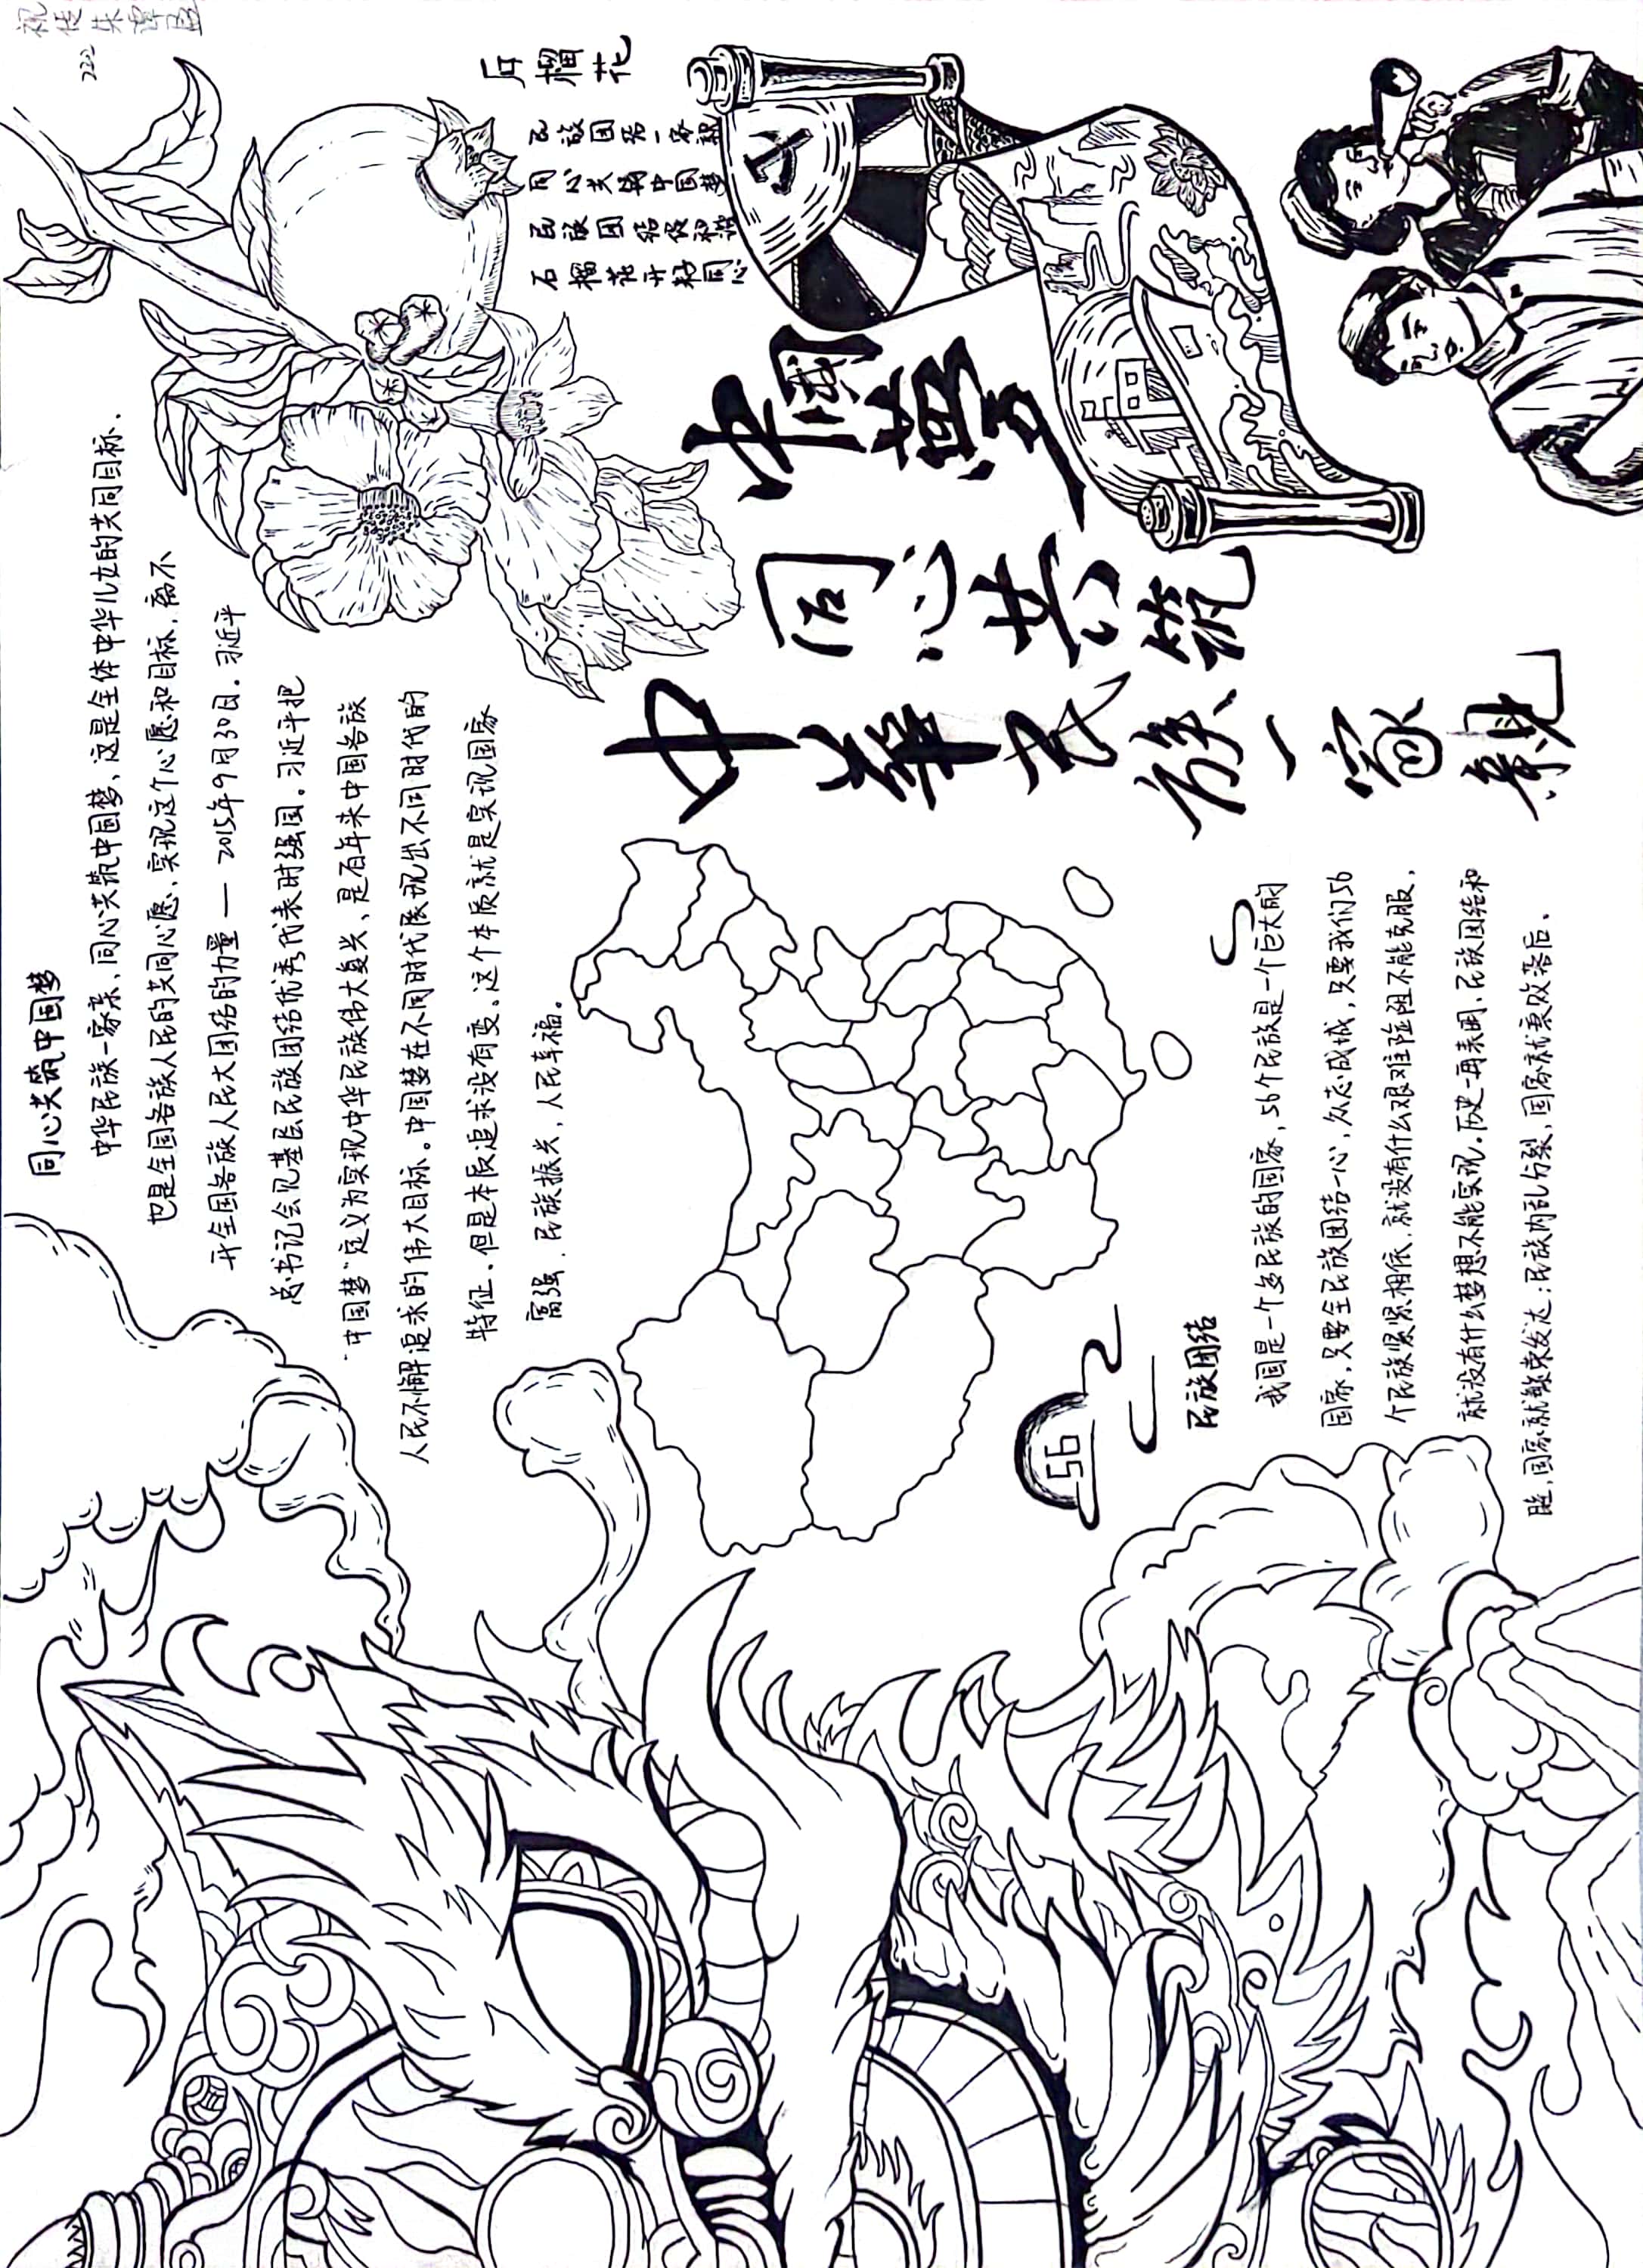 中华民族一家親
同心共筑
中國夢
石榴花
民族团结一家亲
同心共筑中国梦
民族团结传
石榴花开籽同心
同心共筑中国梦
中华民族一家亲、同心共筑中国梦、这是全体中华儿女的共同目标、
也是全国各族人民的共同心愿、实现这个心愿和目标,离不
开全国各族人民大团结的力量——2015年9月30日.习近平
总书记会见基层民族团结优秀代表时强国。习近平把
“中国梦”定义为实现中华民族伟大复兴、是百年来中国各族
人民不懈追求的伟大目标。中国梦在不同时代展现出不同时代的
特征、但是本质追求没有变、这个本质就是实现国家
富强、民族振兴,人民幸福。
56
民族团结
我国是一个多民族的国家,56个民族是一个巨大的
国家,只要全民族团结一心,众志成城,只要我们56
个民族紧紧相依,就没有什么艰难险阻不能克服,
就没有什么梦想不能实现。历史一再表明、民族团结和
睦,国家就繁荣发达;民族内乱分裂,国家就衰败落后、